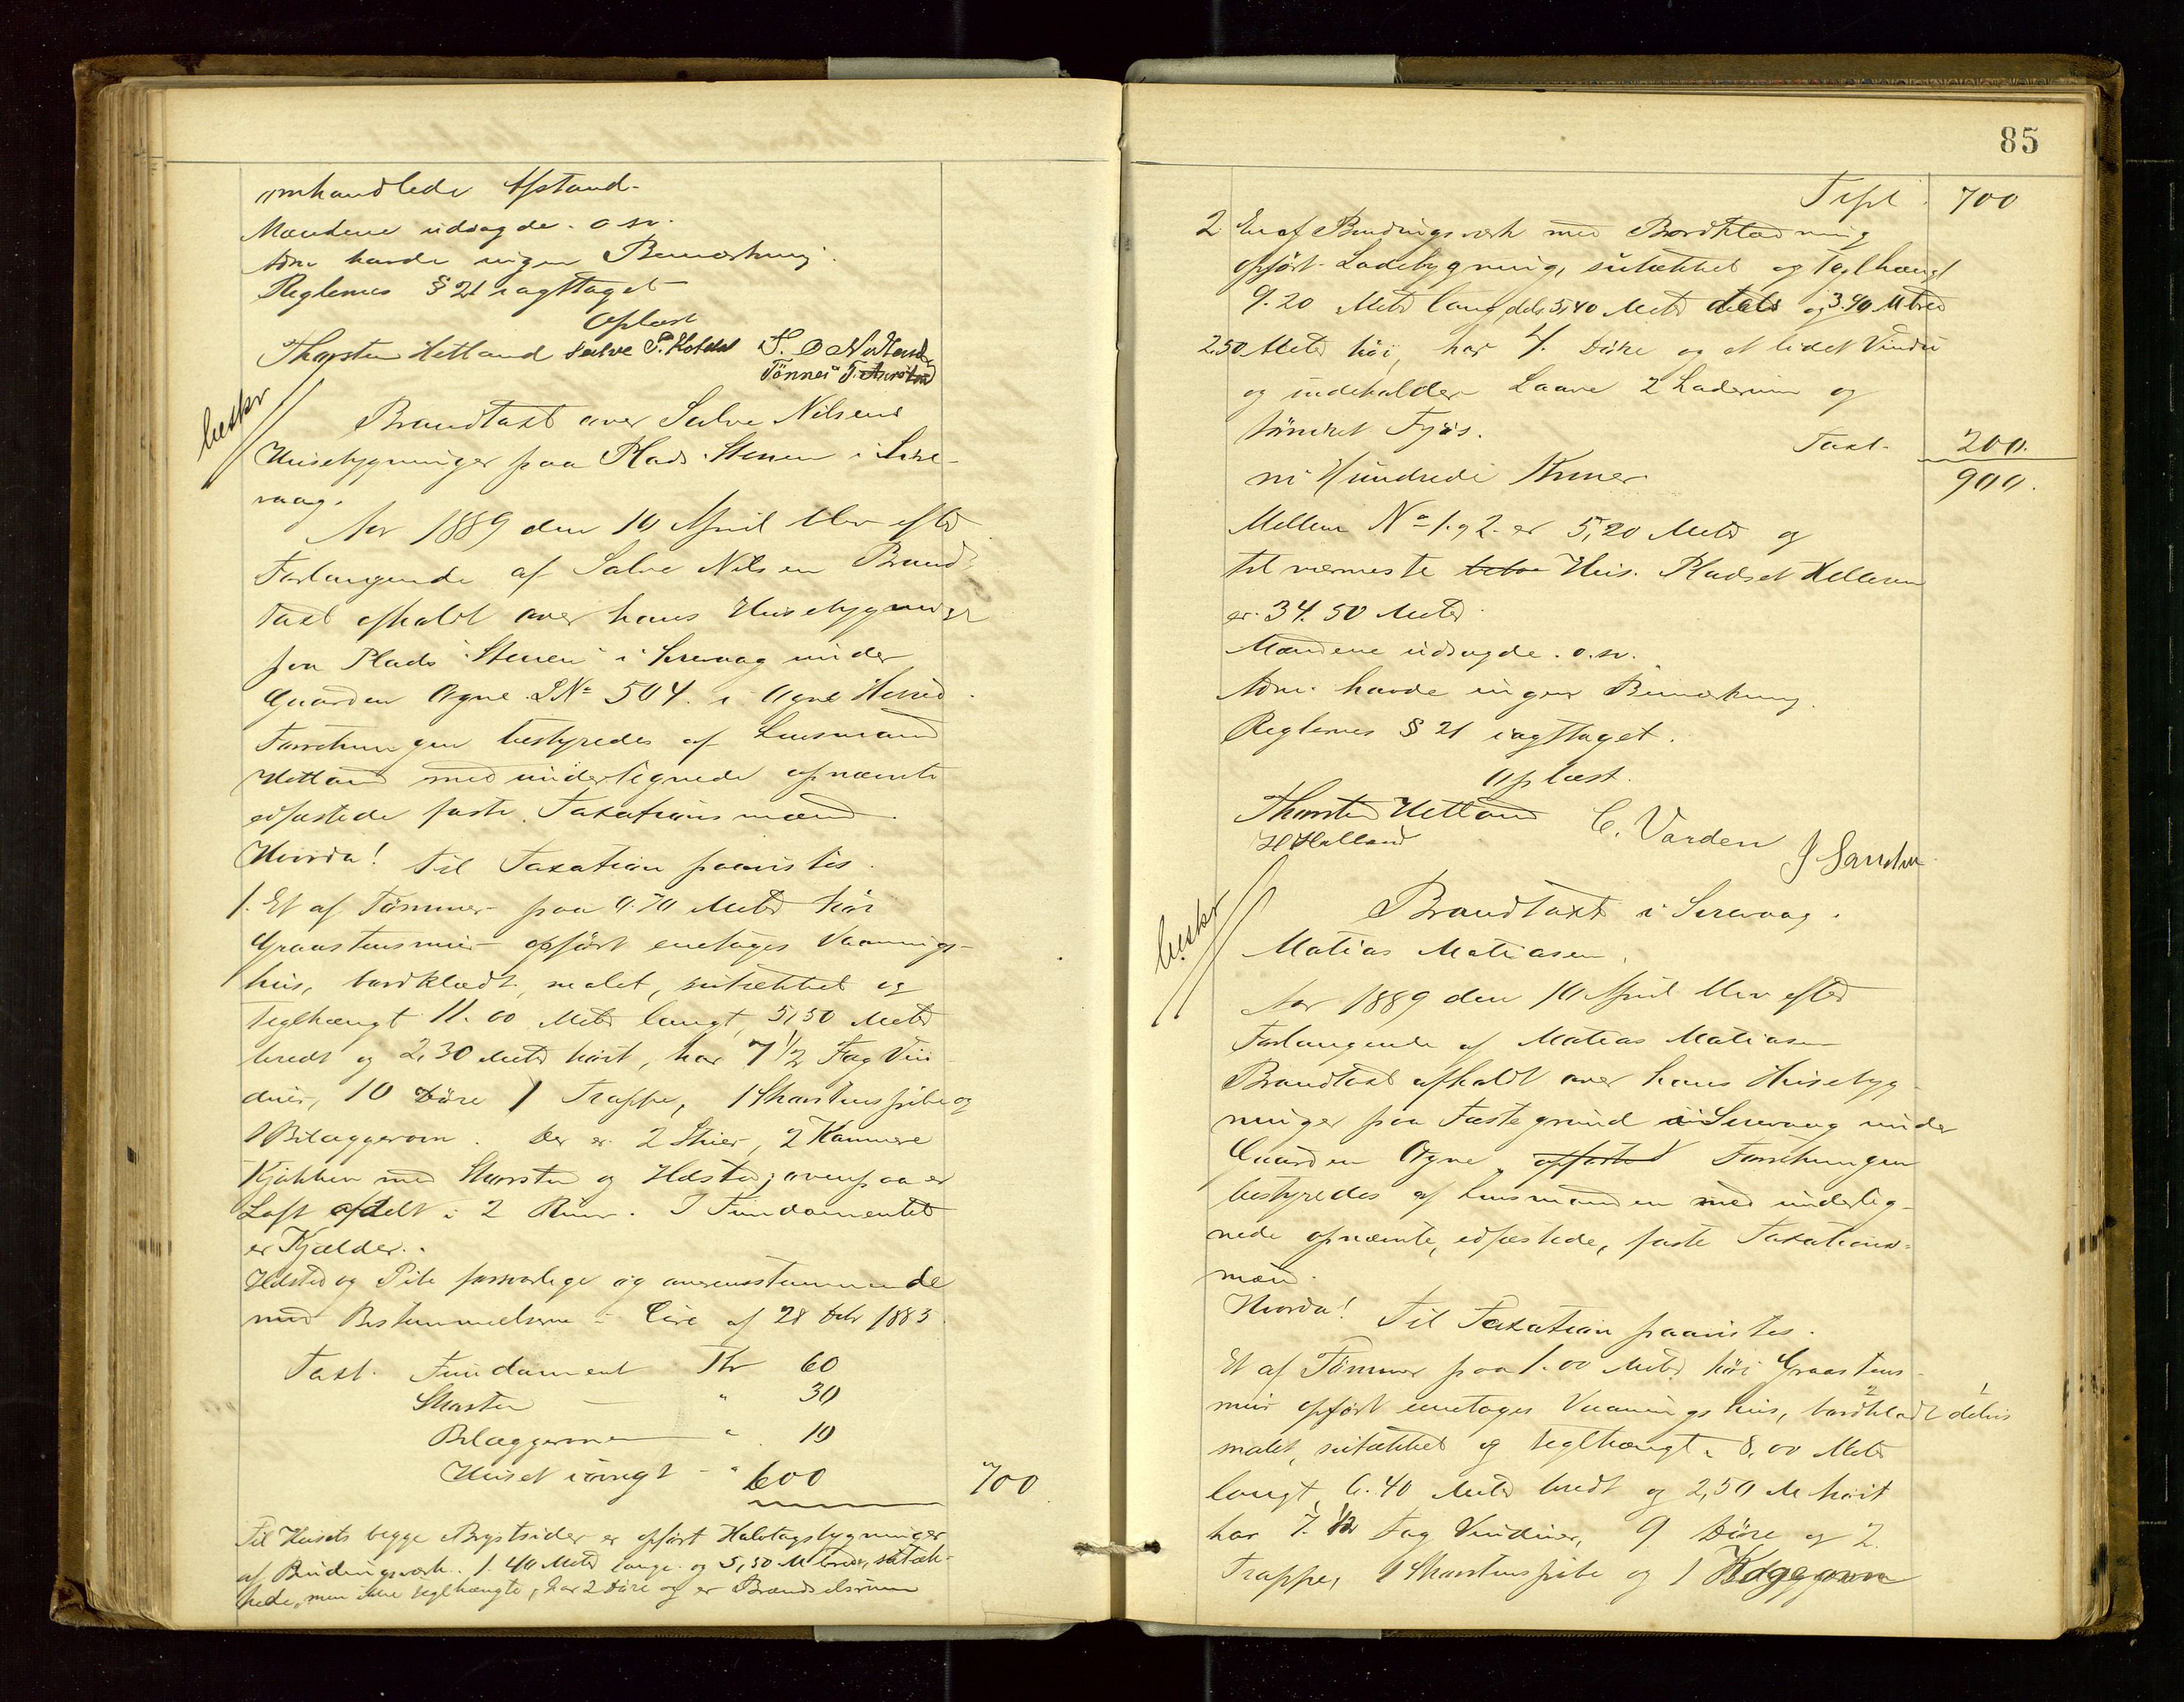 omhandlede Afstand.
Mændene udsagde. o sv.
Adm. havde ingen Bemærkning.
Reglernes § 21 iagttaget
Oplæst
Thorsten Hetland Salve P. Hotdal S. O Norland
Tönnes T.
beskr
Brandtaxt over Salve Nilsens
Husebygninger paa Plads Stenen i Sire-
vaag.
Aar 1889 den 10 April blev efter
Forlangende af Salve Nilsen Brand-
taxt afholdt over hans Husebygninger
paa Plads "Stenen" i Sirevaag under
Gaarden Ogne L№ 504. i Ogne Herred.
Forretningen bestyredes af Lensmand
Hetland med undertegnede opnævnte
edfæstede faste Taxationsmænd.
Hvorda! Til Taxation paavistes.
1. Et af Tömmer paa 0.70 Meter höi
Graastensmur opfört enetages Vaanings-
hus, bordklædt, malet, sutækket og
Teglhængt 11.00 Meter langt, 5,50 Meter
bredt og 2,30 Meter höit, har 7 1/2 Fag Vin-
duer, 10 Döre 1 Trappe, 1 Skorstenspibe og
1 Bilæggerovn. Der er 2 Stuer, 2 Kammere
Kjökken med Skorsten og Ildsted; ovenpaa er
Loft afdelt i 2 Rum. I Fundamentet
er Kjælder.
Ildsted og Pibe forsvarlige og overensstemmende
med Bestemmelserne i Circ af 28 Debr 1883
Taxt. Fundament Kr 60
Skorsten — " 30
Bilæggerovn — " 10
Huset iövrigt - " 600 700
Til Husets begge Brystsider er opfört Halvtagsbygninger
af Bindingsværk. 1.40 Meter lange og 5,50 M brede, sutæk-
kede, men ikke teglhængte, har 2 Döre og er Brændselsrum
85
Tspt. 700
2 En af Bindingsværk med Bordklædning
opfört Ladebygning, sutækket og Teglhængt
9.20 Meter lang, dels 5,40 Meter dels og 3.90 M bred
2.50 Meter höi, har 4. Döre og et lidet Vindu
og indeholder Laave 2 Laderum og
tömret Fjös. Taxt. 200.
ni Hundrede Kroner 900.
Mellem № 1. og 2. er 5,20 Meter og
til nærmeste Hus. Pladset Helleren
er 34.50 Meter.
Mændene udsagde. o. sv.
Adm. havde ingen Bemærkning.
Reglernes § 21 iagttaget.
Oplæst.
Thorsten Hetland C. Varden
H Holland
beskr
Brandtaxt i Sirevaag.
Matias Matiasen.
Aar 1889 den 10 April blev efter
Forlangende af Matias Matiasen
Brandtaxt afholdt over hans Husebyg-
ninger paa Fæstegrund i Sirevaag under
Gaarden Ogne, Forretningen
bestyredes af Lensmanden med underteg-
nede opnævnte, edfæstede, faste Taxations-
mænd.
Hvorda! Til Taxation paavistes.
Et af Tömmer paa 1.00 Meter höi Graastens-
mur opfört enetages Vaaningshus, bordklædt delvis
malet, sutækket og teglhængt. 8,00 Meter
langt, 6.40 Meter bredt og 2,50 M höit
har 7. 1/2 Fag Vinduer, 9 Döre og 2
Trappe, 1 Skorstenspibe og 1